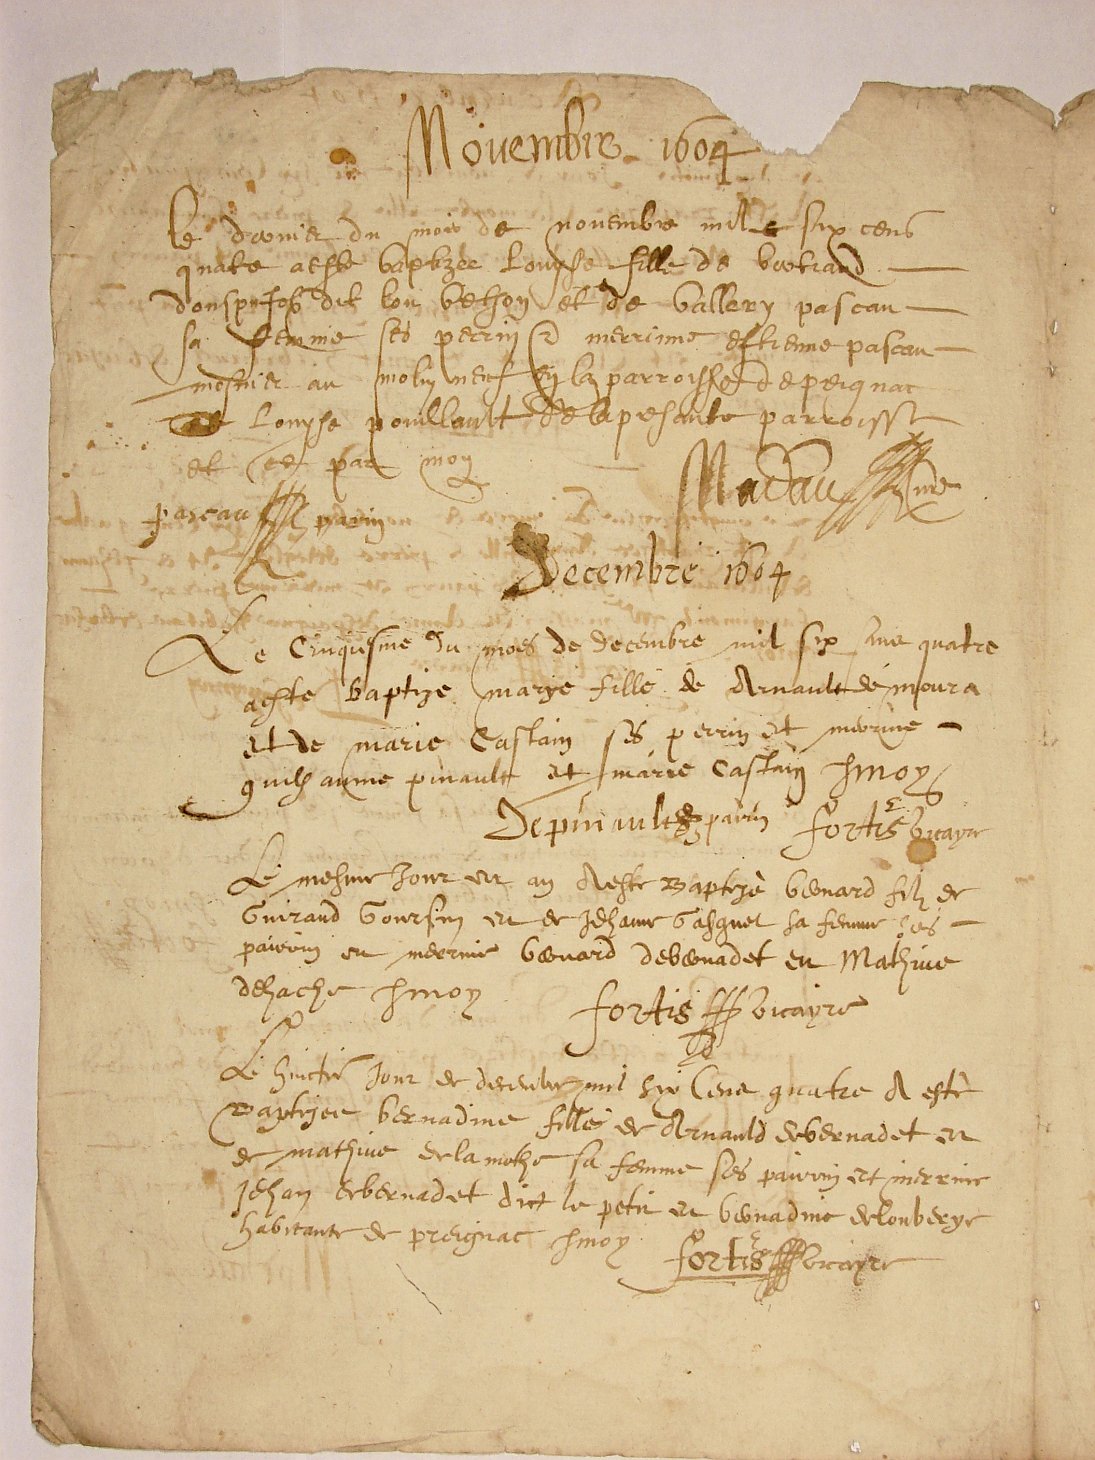 Novembre 1604
Le dernier du mois de novembre mil six cens
quatre a este baptizee Louyse fille de bertrand
dit et de Vallery pascau
sa femme ses perrin & merrine estienne pascau
mosnier au molin neuf en la parroisse de preignac
et Louyse pouillault de la presante parroisse
et ce par moy
pascau parin
Decembre 1604
Le cinquesme du moes de decembre mil six cens quatre
a este baptize marye fille de Arnault de moura
et de marie Castain ses perrin et merrine
guilhaume pinault et marie castain p moy
Depinault parin fortis vicayre
Le mesme Jour et an A este Baptizé bernard filz de
Guiraud Goursin et de Jehanne Gasquet sa femme ses
pairin et merrine bernard debernadet et Mathive
dehache p moy
fortis vicayre
Le huictie Jour de decembre mil six Cens quatre A esté
Baptizee bernadine fille de Arnauld debernadet et
de mathive delamothe sa femme ses pairin et merrine
Jehan debernadet dict le petit et bernadine delouberye
habitante de preignac p moy
fortis vicayre